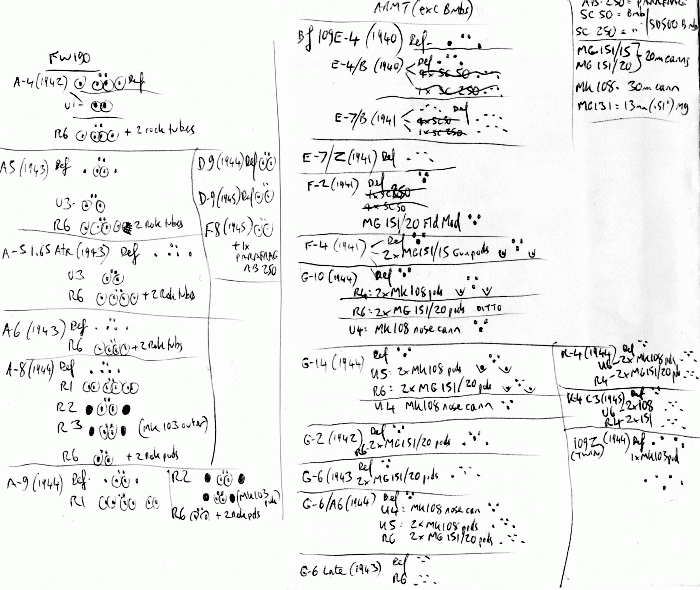 FW190
A-4 (1942) Def
U1-
R6 + 2 rock tubes
A5 (1943) Def
U3-
R6 2 Rock tubes
A-5 1.65 Atr (1943) Def
U3
R6 + 2 Rock tubes
A6 (1943) Def
R6 + 2 Rock tubes
A-8 (1944) Def
R1
R2
R3 (MK 103 outer)
R6 + 2 rock pods
A-9 (1944) Def-
R1
R2
(MK103 pods)
R6 + 2 rock pds
D9 (1944) Def
D-9 (1945) Def
F8 (1945)
+ 1x
PARAFRAG
AB 250
ARMT (exc Bmbs)
Bf 109E-4 (1940) Def-
E-4/B (1940) Def
4x SC 50
1x SC 250
E-7/B (1941) Def
4x SC50
1x SC 250
E-7/Z (1941) Def
F-2 (1941) Def
1x SC 250
4x SC 50
MG 151/20 Fld Mod
F-4 (1941) Def
2x MG151/15 Gunpods
G-10 (1944) Def
R4: 2x MK108 pds
R6: 2x MG 151/20 pods DITTO
U4: MK 108 nose cann
G-14 (1944) Def
U5: 2x MK108 pods
R6: 2x MG 151/20 pds
U4 MK108 nose cann
G-2 (1942) Def
R6 2x MG151/20 pds
G-6 (1943 Def
2x MG151/20 pds
G-6/A6 (1944) Def
U4: MK108 nose can
U5: 2x MK108 pods
R6 2x MG 151/20 pods
G-6 Late (1943) Def
R6
K-4 (1944) Def
U6 - 2x MK108 pds
R4 - 2x MG151/20 pds
K-4 C3 (1945) Def
U6 2x108
R4 - 2x151
109Z (1944) Def
(TWIN) 1x MK103 pod
AB 250 = PARAFRAG
SC 50 = Bmb
SC 250 = " SD500 Bmb
MG 151/15
MG 151/20 20m cann
MK 108 - 30m cann
MG131 = 13mm (.51") mg